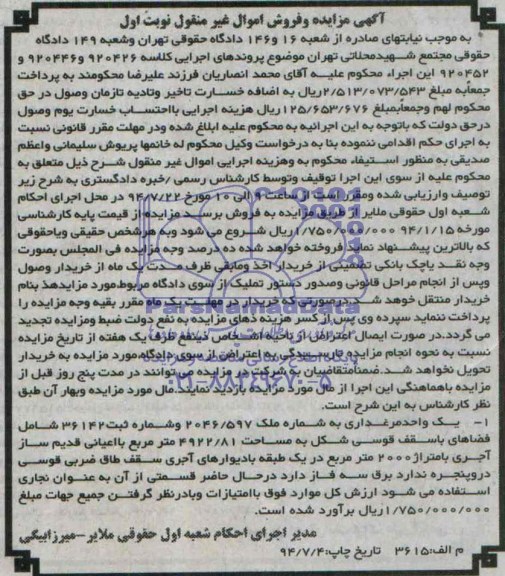 آگهی مزایده وفروش اموال غیر منقول نوبت اول
به موجب نیابتهای صادره از شعبه ۱۶ و۱۴۶ دادگاه حقوقی تهران وشعبه ۱۴۹ دادگاه
حقوقی مجتمع شهیدمحلاتی تهران موضوع پروندهای اجرایی کلاسه ۹۲۰۴۲۶ و۹۲۰۴۴۶ و
۹۲۰۴۵۲ این اجراء محکوم علیه آقای محمد انصاریان فرزند علیرضا محکومند به پرداخت
جمعأبه مبلغ ۲/۵۱۳/۰۷۳/۵۴۳ریال به اضافه خسارت تاخیر وتادیه تازمان وصول در حق
محکوم لهم وجمعأبمبلغ ۱۲۵/۶۵۳/۶۷۶ریال هزینه اجرایی بااحتساب خسارت یوم وصول
درحق دولت که باتوجه به این اجرائیه به محکوم علیه ابلاغ شده ودر مهلت مقرر قانونی نسبت
به اجرای حکم اقدامی ننموده بنا به درخواست وکیل محکوم له خانمها پریوش سلیمانی واعظم
صدیقی به منظور استیفاء محکوم به وهزینه اجرایی اموال غیر منقول شرح ذیل متعلق به
محکوم علیه از سوی این اجرا توقیف وتوسط کارشناس رسمی /خبره دادگستری به شرح زیر
توصیف وارزیابی شده ومقرر است از ساعت ۹ الی ۱۰ مورخ ۹۴/۷/۲۲ در محل اجرای احکام
شعبه اول حقوقی ملایر از طریق مزایده به فروش برسد.مزایده از قیمت پایه کارشناسی
مورخه ۹۴/۱/۱۵ ۱/۷۵۰/۰۰۰/۰۰۰ریال شروع می شود وبه هرشخص حقیقی ویاحقوقی
که بالاترین پیشنهاد نماید فروخته خواهد شده ده درصد وجه مزایده فی المجلس بصورت
وجه نقد یاچک بانکی تضمینی از خریدار اخذ ومابقی ظرف مدت یک ماه از خریدار وصول
وپس از انجام مراحل قانونی وصدور دستور تملیک از سوی دادگاه مربوط،مورد مزایدهذ بنام
خریدار منتقل خوهد شد.درصورتی که خریدار در مهلت یک ماه مقرر بقیه وجه مزایده را
پرداخت ننماید سپرده وی پس از کسر هزینه دهای مزایده به نفع دولت ضبط ومزایده تجدید
می گردد.در صورت ایصال اعتراض از ناحیه اشخاص ذینفع ظرف یک هفته از تاریخ مزایده
نسبت به نحوه انجام مزایده تارسیدگی به اعتراض از سوی دادگاه،مورد مزایده به خریدار
تحویل نخواهد شد.ضمنأمتقاضیان به شرکت در مزایده می توانند در مدت پنج روز قبل از
مزایده باهماهنگی این اجرا از مال مورد مزایده بازدید نمایند.مال مورد مزایده وبهار آن طبق
نظر کارشناس به این شرح است.
۱- یک واحدمرغداری به شماره ملک ۲۰۴۶/۵۹۷ وشماره ثبت۳۶۱۴۲ شامل
فضاهای باسقف قوسی شکل به مساحت ۴۹۲۲/۸۱ متر مربع بااعیانی قدیم ساز
آجری بامتراژ ۲۰۰۰ متر مربع در یک طبقه بادیوارهای آجری سقف طاق ضربی قوسی
دروپنجره ندارد برق سه فاز دارد درحال حاضر قسمتی از آن به عنوان نجاری
استفاده می شود ارزش کل موارد فوق باامتیازات وبادرنظر گرفتن جمیع جهات مبلغ
۱/۷۵۰/۰۰۰/۰۰۰ریال برآورد شده است.
مدیر اجرای احکام شعبه اول حقوقی ملایر-میرزابیگی
م الف:۳۶۱۵ تاریخ چاپ:۹۴/۷/۴
ParsNamadData
۰۲۱-۸۸۳۴۹۶۷۰-۵